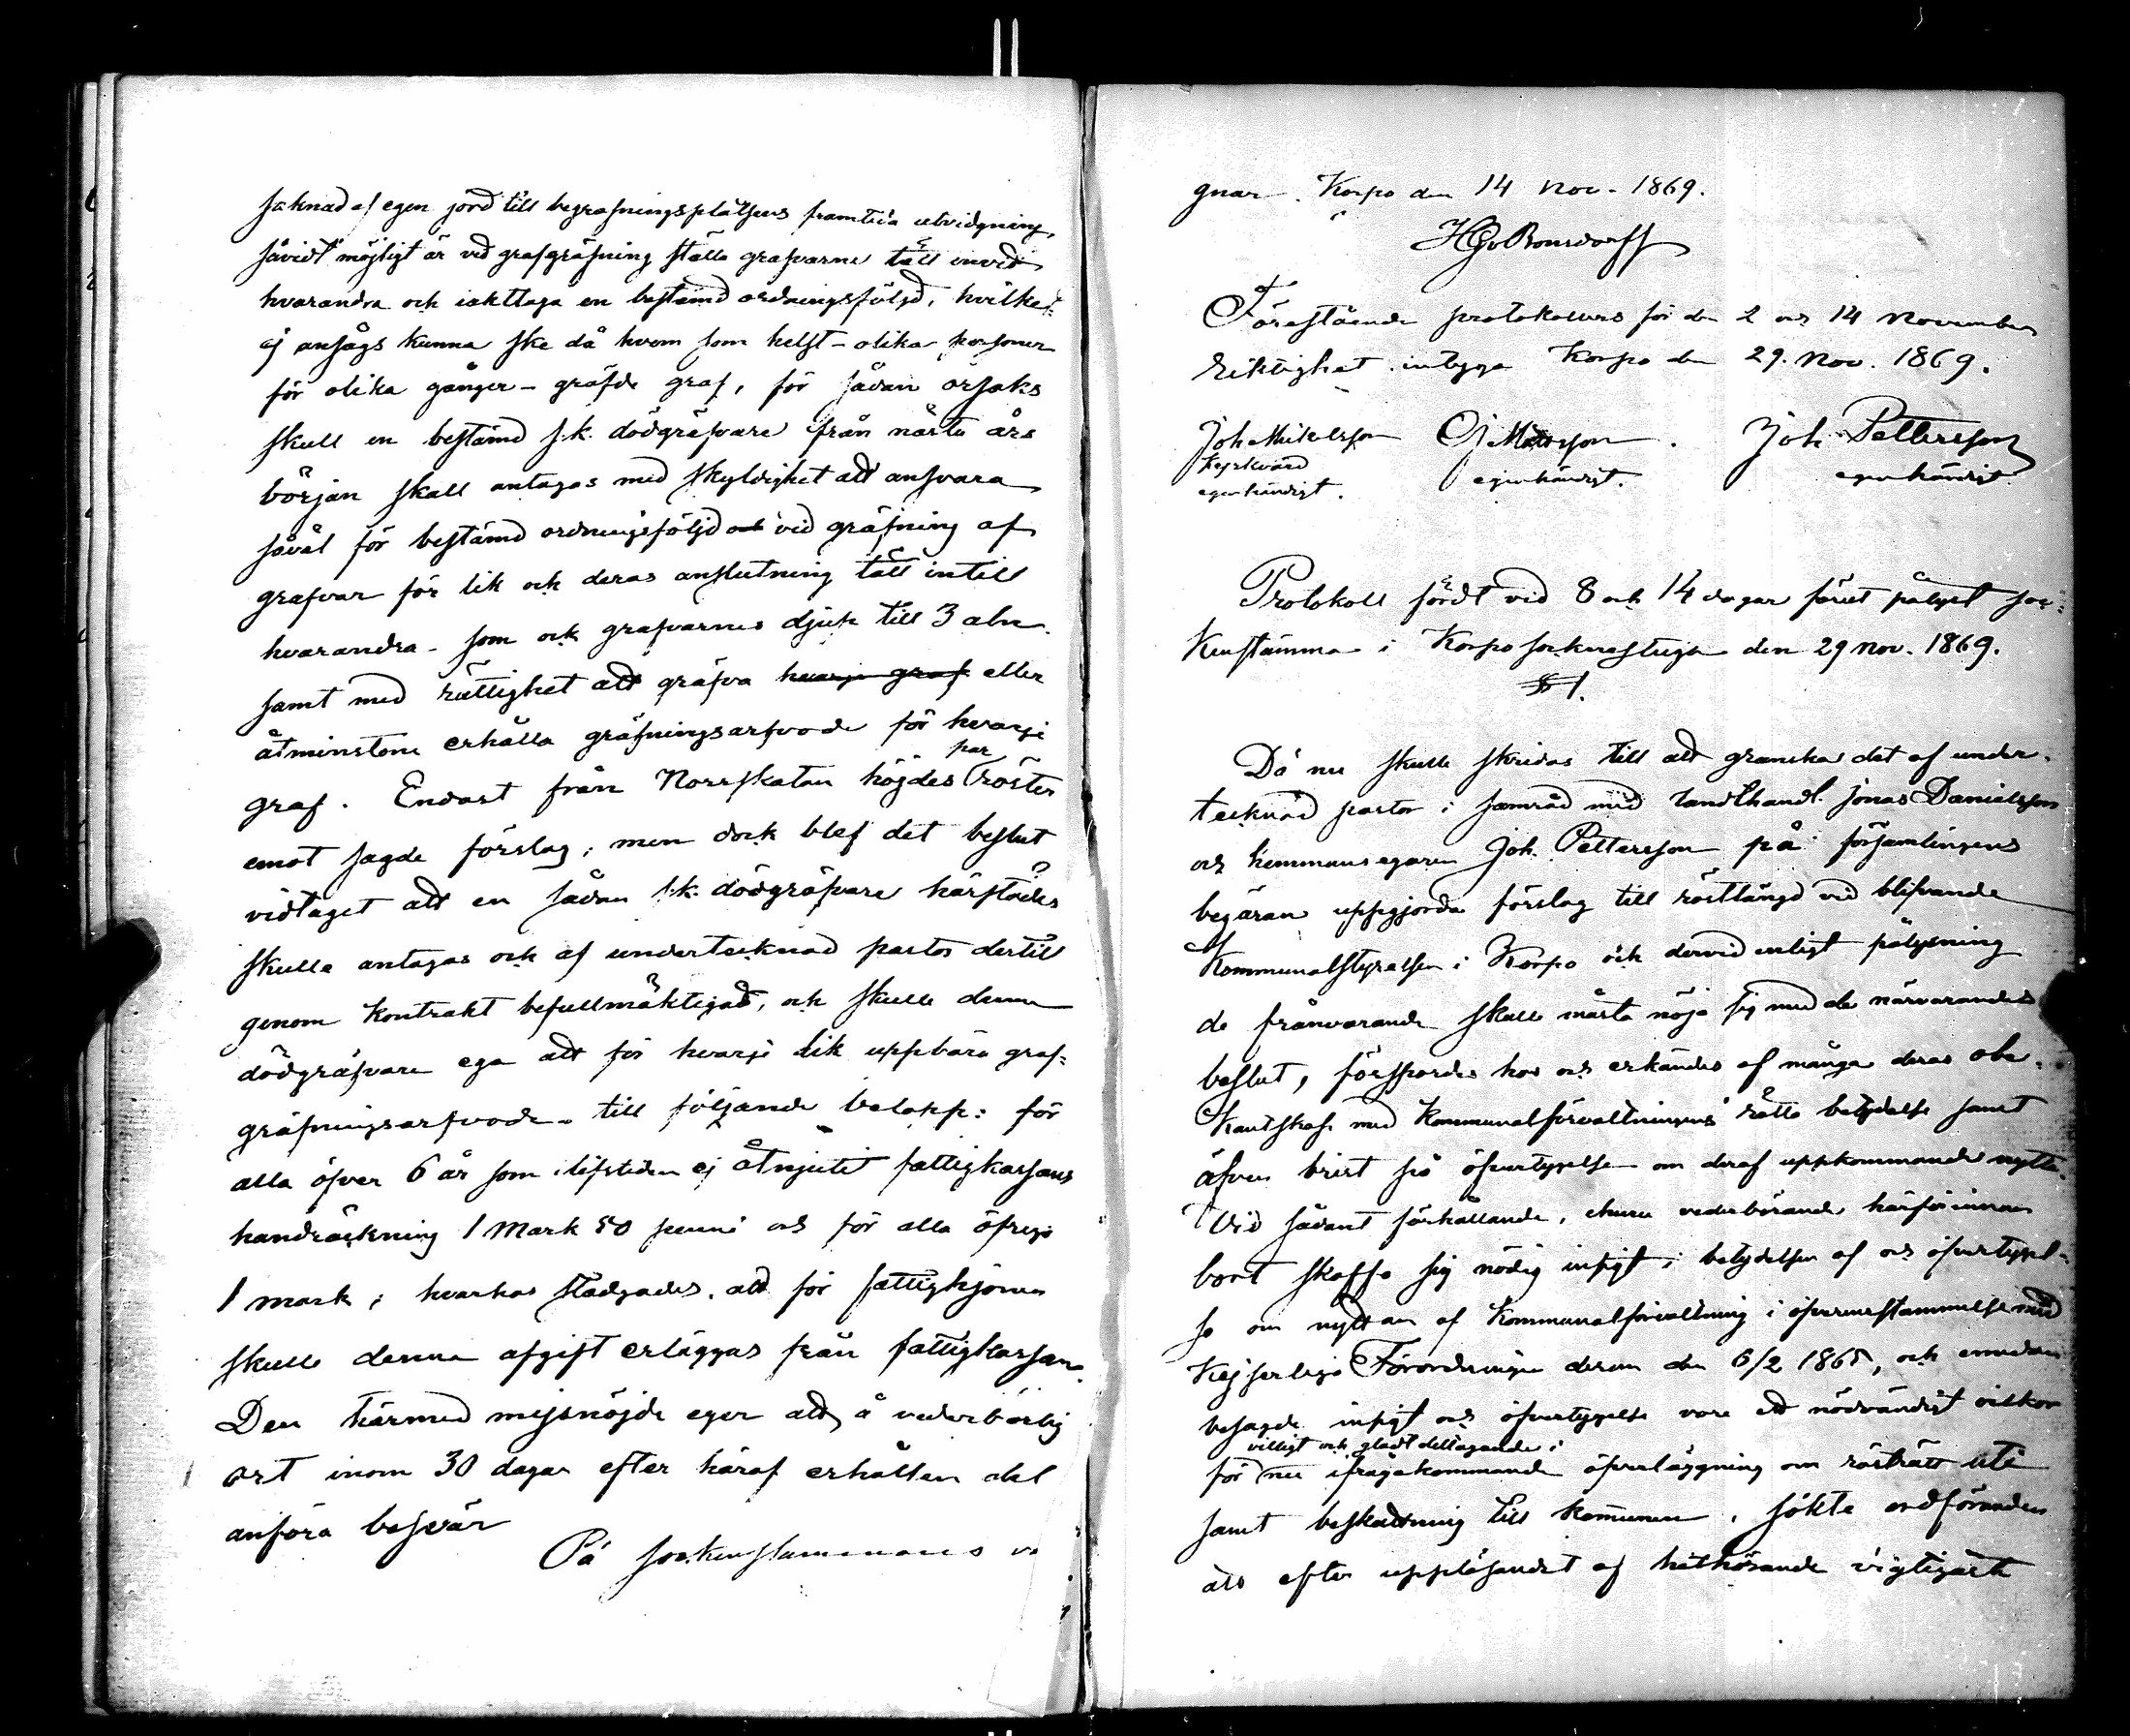 saknad af egen jord till begrafningsplatsens framtida utvidgning,
såvidt möjligt är vid grafgräfning ställa grafvarne tätt invid
hvarandra och iakttaga en bestämd ordningsföljd, hvilket
ej ansågs kunna ske då hvem som helst - olika personer
för olika gånger - gräfde graf, för sådan orsaks
skull en bestämd s.k. dödgräfvare från nästa års
början skall antagas med skyldighet att ansvara
såväl för bestämd ordningsföljd och vid gräfning af
grafvar för lik och deras anslutning tätt intill
hvarandra - som ock grafvarnes djup till 3 aln
samt med rättighet att gräfva hvarje graf eller
åtminstone erhålla gräfningsarfvode för hvarje
graf. Endast från Norrskatan höjdes par röster
emot sagde förslag; men dock blef det beslut
vidtaget att en sådan s.k. dödgräfvare härstädes
skulle antagas och af undertecknad pastor dertill
genom Kontrakt befullmäktigad, och skulle denna
dödgräfvare ega att för hvarje lik uppbära graf-
gräfningsarfvode - till följande belopp: för
alla öfver 6 år som i lifstiden ej åtnjutit fattigkassans
handräckning 1 Mark 50 penni och för alla öfriga
1 mark; hvarhos stadgades, att för fattighjonen
skulle denna afgift erläggas från fattigkassan.
Den härmed missnöjde eger att å vederbörlig
ort inom 30 dagar efter häraf erhållen del
anföra besvär
På sockenstämmans
gnar. Korpo den 14 Nov. 1869.
HGvBonsdorff
Förestående protokollers för den 2 och 14 November
riktighet intyga Korpo den 29. Nov. 1869.
Joh Mickelsson Mattsson. Joh Pettersson
Kyrkvärd
egenhändigt. egenhändigt. egenhändigt
Protokoll fördt vid 8 och 14 dagar förut pålyst soc-
kenstämma i Korpo sockenstuga den 29 Nov. 1869.
§ 1.
Då nu skulle skridas till att granska det af under-
tecknad pastor i samråd med landthandl. Jonas Danielsson
och hemmansegaren Joh. Pettersson på församlingens
begäran uppgjorda förslag till röstlängd vid blifvande
Kommunalstyrelsen i Korpo och dervid enligt pålysning
de frånvarande skulle måsta nöja sig med de närvarandes
beslut, försspordes hos och erkändes af många deras obe-
kantskap med Kommunalförvaltningens rätta betydelse samt
äfven brist på öfvertygelse om deraf uppkommande nytta.
Vid sådant förhållande, ehuru vederbörande härförinnan
bort skaffa sig nödig insigt i betydelsen af och öfvertygel-
se om nyttan af Kommunalförvaltning i öfverensstämmelse med
Kejserliga Förordningen derom den 6/2 1865, och emedan
besagde insigt och öfvertygelse vore ett nödvändigt vilkor
villigt och gladt deltagande i
för nu ifrågakommande öfverläggning om rösträtt uti
samt beskattning till Kommunen, sökte ordföranden
att efter uppläsandet af hithörande vigtigaste